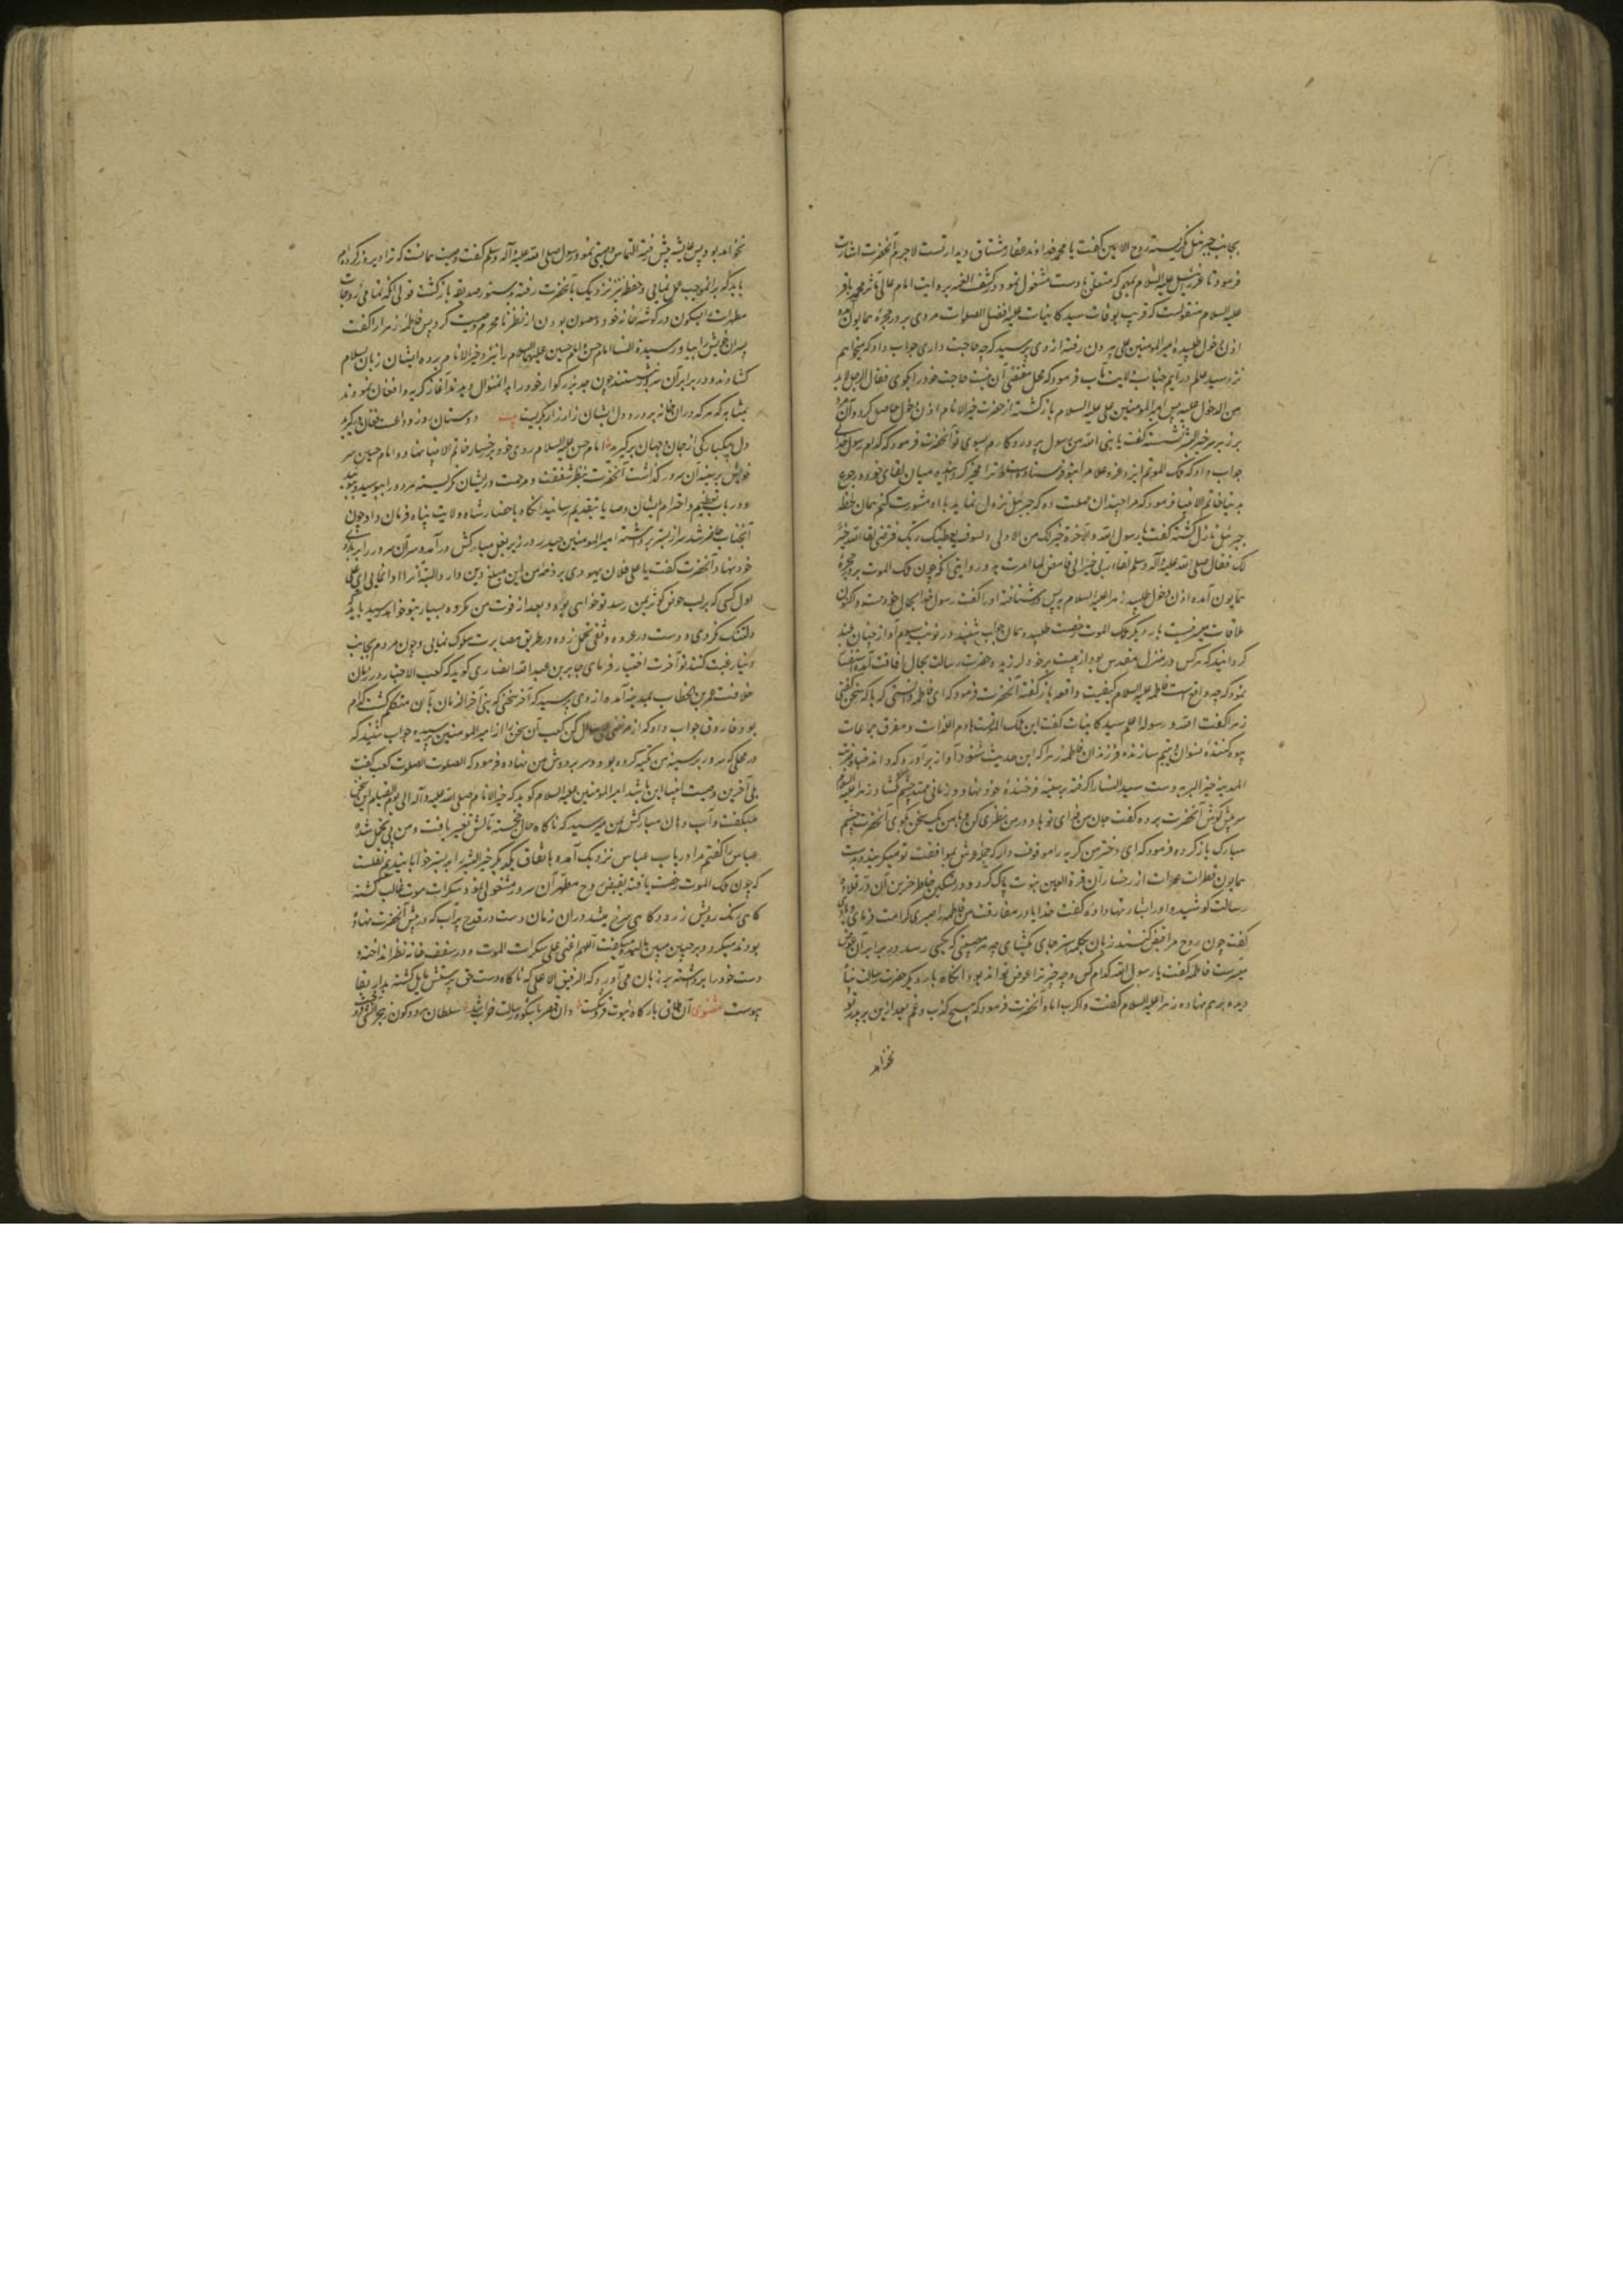 بجانب جبرئیل نگریسته روح الامین گفت یا محمد خداوند غفار مشتاق دیدار تست لاجرم آنحضرت اشارت
فرمود تا عزرائیل علیه السلام بمهمی که متعلق باوست مشغول نمود و در کشف الغمه بروایت امام عالی مآثر محمد باقر
علیه السلام منقولست که قریب بوفات سید کاینات علیه افضل الصلوات مردی بر در حجرهٔ همایون آمده
اذن دخول طلبیده امیرالمومنین علی بیرون رفته از وی پرسید که چه حاجت داری جواب داد که میخواهم
نزد سید عالم درآیم جناب ولایت مآب فرمود که محل مقتضی آن نیست حاجت خود را بگوی فقال الرجل لا بد
من الدخول علیه پس امیرالمومنین علی علیه السلام بازگشته از حضرت خیر الانام اذن دخول حاصل کرد و آن مرد
بر زبر سر خیر البشر نشسته گفت یا نبی الله من رسول پروردگارم بسوی تو آنحضرت فرمود که کدام رسول خدائی
جواب داد که ملک الموتم ایزد عز و علا مرا بتو فرستاده و ترا مخیر گردانیده میان لقای خود و رجوع
بدنیا خاتم الانبیا فرمود که مرا چندان مهلت ده که جبرئیل نزول نماید با او مشورت کنم همان لحظه
جبرئیل نازل گشته گفت یا رسول الله و للآخرة خیر لک من الاولی و لسوف یعطیک ربک فترضی لقاء الله خیر
لک فقال صلی الله علیه و آله وسلم لقاء ربی خیر لی فامض لما امرت به و روایتی آنکه چون ملک الموت بر در حجرهٔ
همایون آمده اذن دخول طلبید زهرا علیه السلام به پس در شتافته او را گفت رسول خدا بحال خودست و اکنون
ملاقات میسر نیست بار دیگر ملک الموت رخصت طلبیده همان جواب شنید در نوبت سیوم آواز چنان بلند
گردانید که هر کس در منزل مقدس بود از هیبت بر خود لرزید و حضرت رسالت بحال افاقت آمده استفسار
نمود که چه واقع است فاطمه علیه السلام کیفیت واقعه باز گفته آنحضرت فرمود که ای فاطمه دانستی که با که سخن گفتی
زهرا گفت الله و رسوله اعلم سید کاینات گفت این ملک الموتست هادم اللذات و مفرق جماعات
بیوه کنندهٔ نسوان و یتیم سازنده فرزندان فاطمه زهرا که این حدیث شنود آواز برآورد که وا مدینتاه خربت
المدینه خیر البریه دست سید النسا را گرفته بر سینهٔ فرخندهٔ خود نهاد و زمانی ممتد چشم نگشاد زهرا علیه السلام
سر پیش گوش آنحضرت برده گفت جان من فدای تو باد در من نظری کن و با من یک سخن بگوی آنحضرت چشم
مبارک باز کرده فرمود که ای دختر من گریه را موقوف دار که حملهٔ عرش بموافقت تو میگریند و بدست
همایون قطرات عبرات از رخسار آن قرة العین نبوت پاک کرد و در تسکین خاطر حزین آن درّ قلادهٔ
رسالت کوشید و او را بشارتها داده گفت خدایا در مفارقت من فاطمه را صبری کرامت فرمای و با وی
گفت چون روح مرا قبض کنند زبان بکلمهٔ استرجاع بگشای چه هر مصیبتی که بکسی رسد در برابر آن عوض
میسرست فاطمه گفت یا رسول الله کدام کس و چه چیز ترا عوض تواند بود آنگاه بار دیگر حضرت رسالت پناه
دیده برهم نهاده زهرا علیه السلام گفت وا کرب اباه آنحضرت فرمود که هیچ کرب و غم بعد ازین بر پدر تو
نخواهد
نخواهد بود پس عایشه پیش رفته التماس وصیتی نمود رسول صلی الله علیه و آله وسلم گفت وصیت همانست که ترا دیروز کرده‌ام
باید که بر آنموجب عمل نمایی و حفصه نیز نزدیک بآنحضرت رفته بدستور صدیقه بازگشت قولی آنکه تمامی زوجات
مطهرات را بسکون در گوشه خانه خود و مصون بودن از نظر نامحرم وصیت کرد پس فاطمه زهرا را گفت
پسران خویش را بیاور سیدة النسا امام حسن و امام حسین علیهما السلام را نزد خیر الانام برده ایشان زبان بسلام
گشادند و در برابر آن سرور نشستند چون جد بزرگوار خود را بدانمنوال دیدند آغاز گریه و افغان نمودند
بمثابه که هر که در آن خانه بود بر درد دل ایشان زار زار بگریست بیت دوستان روز وداعست فغان درگیرم
دل بیکبارگی از جان و جهان برگیرم امام حسن علیه السلام روی خود بر رخسار خاتم الانبیا نهاد و امام حسین سر
خویش بر سینهٔ آن سرور گذاشت آنحضرت بنظر شفقت و مرحمت در ایشان نگریسته هر دو را ببوسید و ببوئید
و در باب تعظیم و احترام ایشان وصایا بتقدیم رسانید آنگاه باحضار شاه ولایت پناه فرمان داد چون
آنجناب حاضر شد سر از بستر برداشته امیرالمومنین حیدر در زیر بغل مبارکش درآمد و سر آن سرور را بر بازوی
خود نهاد و آنحضرت گفت یا علی فلان یهودی بر ذمهٔ من این مبلغ دین دارد البته آنرا ادا نمایی ای علی
اول کسی که بر لب حوض کوثر بمن رسد تو خواهی بود و بعد از فوت من مکروه بسیار بتو خواهد رسید باید که
دلتنگ نگردی و دست در عروه وثقی تحمل زده در طریق مصابرت سلوک نمایی و چون مردم بجانب
دنیا رغبت کنند تو آخرت اختیار فرمای جابر بن عبدالله انصاری گوید که کعب الاحبار در زمان
خلافت عمر بن الخطاب بمدینه آمده از وی پرسید که آخر سخنی که نبی آخر الزمان بآن متکلم گشت کدام
بود فاروق جواب داد که از مرتضی علی سؤال کن کعب آن سخن را از امیرالمومنین پرسیده جواب شنید که
در محلی که سرور بر سینهٔ من تکیه کرده بود و سر بر دوش من نهاده فرمود که الصلوت الصلوت کعب گفت
بلی آخرین وصیت انبیا این باشد امیرالمومنین علیه السلام گوید که خیر الانام صلی الله علیه و آله الی یوم القیام این سخن
میگفت و آب دهان مبارکش بمن میرسید که ناگاه حال خجسته مآلش تغییر یافت و من بی تحمل شده
عباس را گفتم مرا دریاب عباس نزدیک آمده باتفاق یکدیگر خیر البشر را بر بستر خوابانیدیم نقلست
که چون ملک الموت رخصت یافته بقبض روح مطهر آن سرور مشغولی نمود سکرات موت غالب گشته
گاهی رنگ رویش زرد و گاهی سرخ میشد در آن زمان دست در قدح پر آب که در پیش آنحضرت نهاده
بودند میکرد و بر جبین مبین مالیده میگفت اللهم اغنی علی سکرات الموت و در سقف خانه نظر انداخته
دست خود را برداشته بر زبان می‌آورد که الرفیق الاعلی که ناگاه دست حق پرستش مایل گشته بدار بقا
پیوست مثنوی آن طاق بارگاه نبوت فرو شکست وان قصر باشکوه رسالت خراب شد سلطان هر دو کون